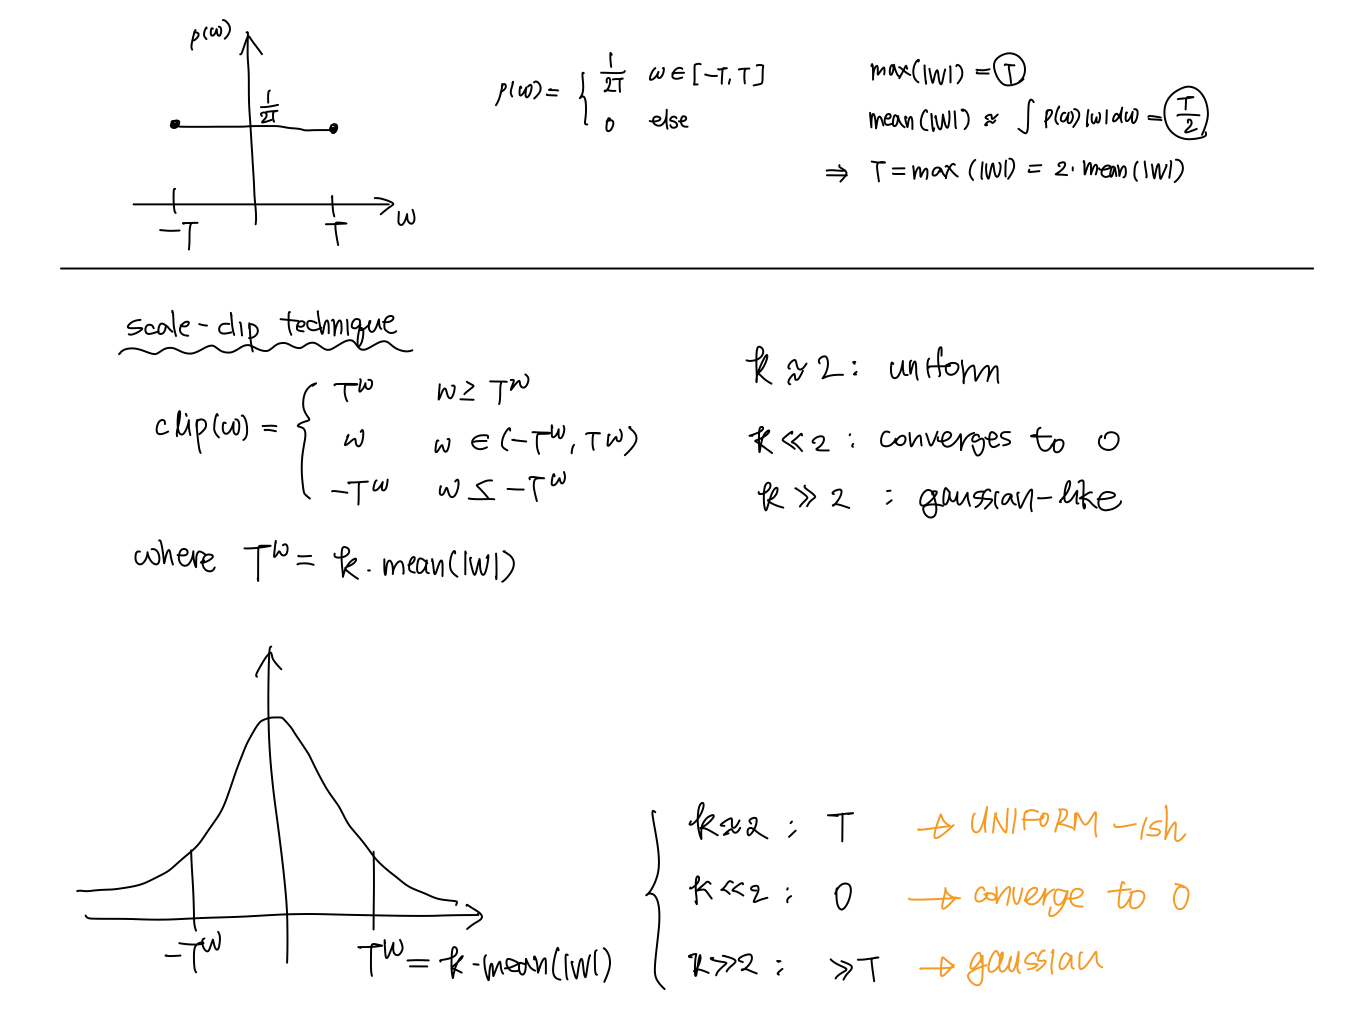 p(ω)
1/2T
-T T ω
p(ω) = { 1/2T ω ∈ [-T, T]
0 else
max(|W|) = T
mean(|W|) ≈ ∫ p(ω) |w| dω = T/2
⇒ T = max (|W|) = 2 · mean(|W|)
scale-clip technique
clip(ω) = { T^W w ≥ T^W
w w ∈ (-T^W, T^W)
-T^W w ≤ -T^W
where T^W = k · mean(|W|)
k ≈ 2 : uniform
k ≪ 2 : converges to 0
k ≫ 2 : gaussian-like
-T^W T^W = k · mean(|W|)
{ k ≈ 2 : T → UNIFORM-ish
k ≪ 2 : 0 → converge to 0
k ≫ 2 : ≫T → gaussian